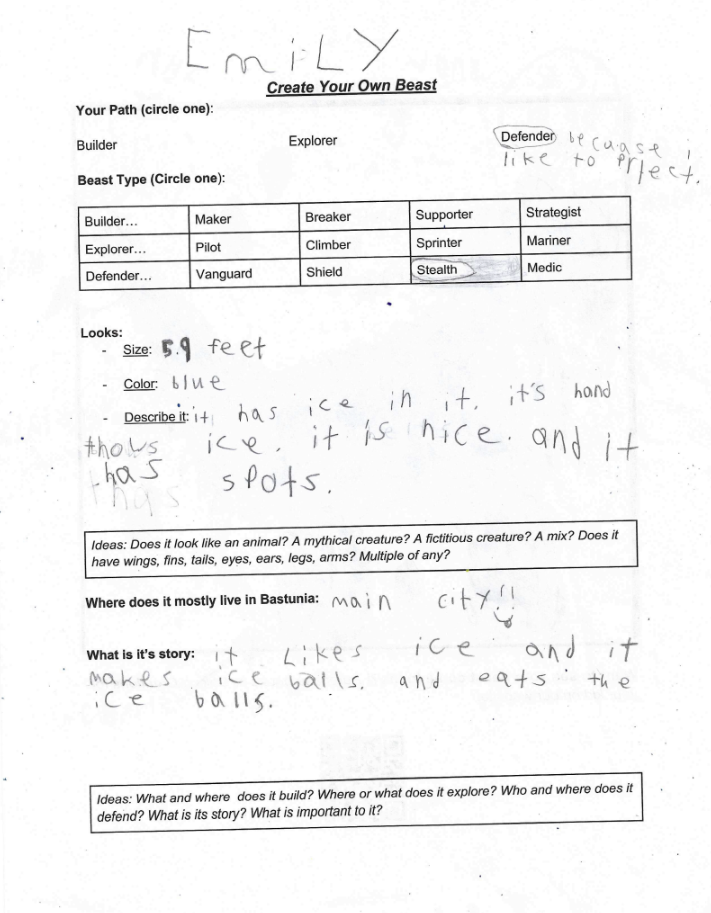 EmiLY
Create Your Own Beast
Your Path (circle one):
Builder Explorer Defender becuase i
like to prtect.
Beast Type (Circle one):
Builder... Maker Breaker Supporter Strategist
Explorer... Pilot Climber Sprinter Mariner
Defender... Vanguard Shield Stealth Medic
Looks:
- Size: 5.9 feet
- Color: blue
- Describe it: it has ice in it. it's hand
thows ice. it is nice. and it
has spots.
Ideas: Does it look like an animal? A mythical creature? A fictitious creature? A mix? Does it
have wings, fins, tails, eyes, ears, legs, arms? Multiple of any?
Where does it mostly live in Bastunia: main city!!
What is it's story: it Likes ice and it
makes ice balls. and eats the
ice balls.
Ideas: What and where does it build? Where or what does it explore? Who and where does it
defend? What is its story? What is important to it?